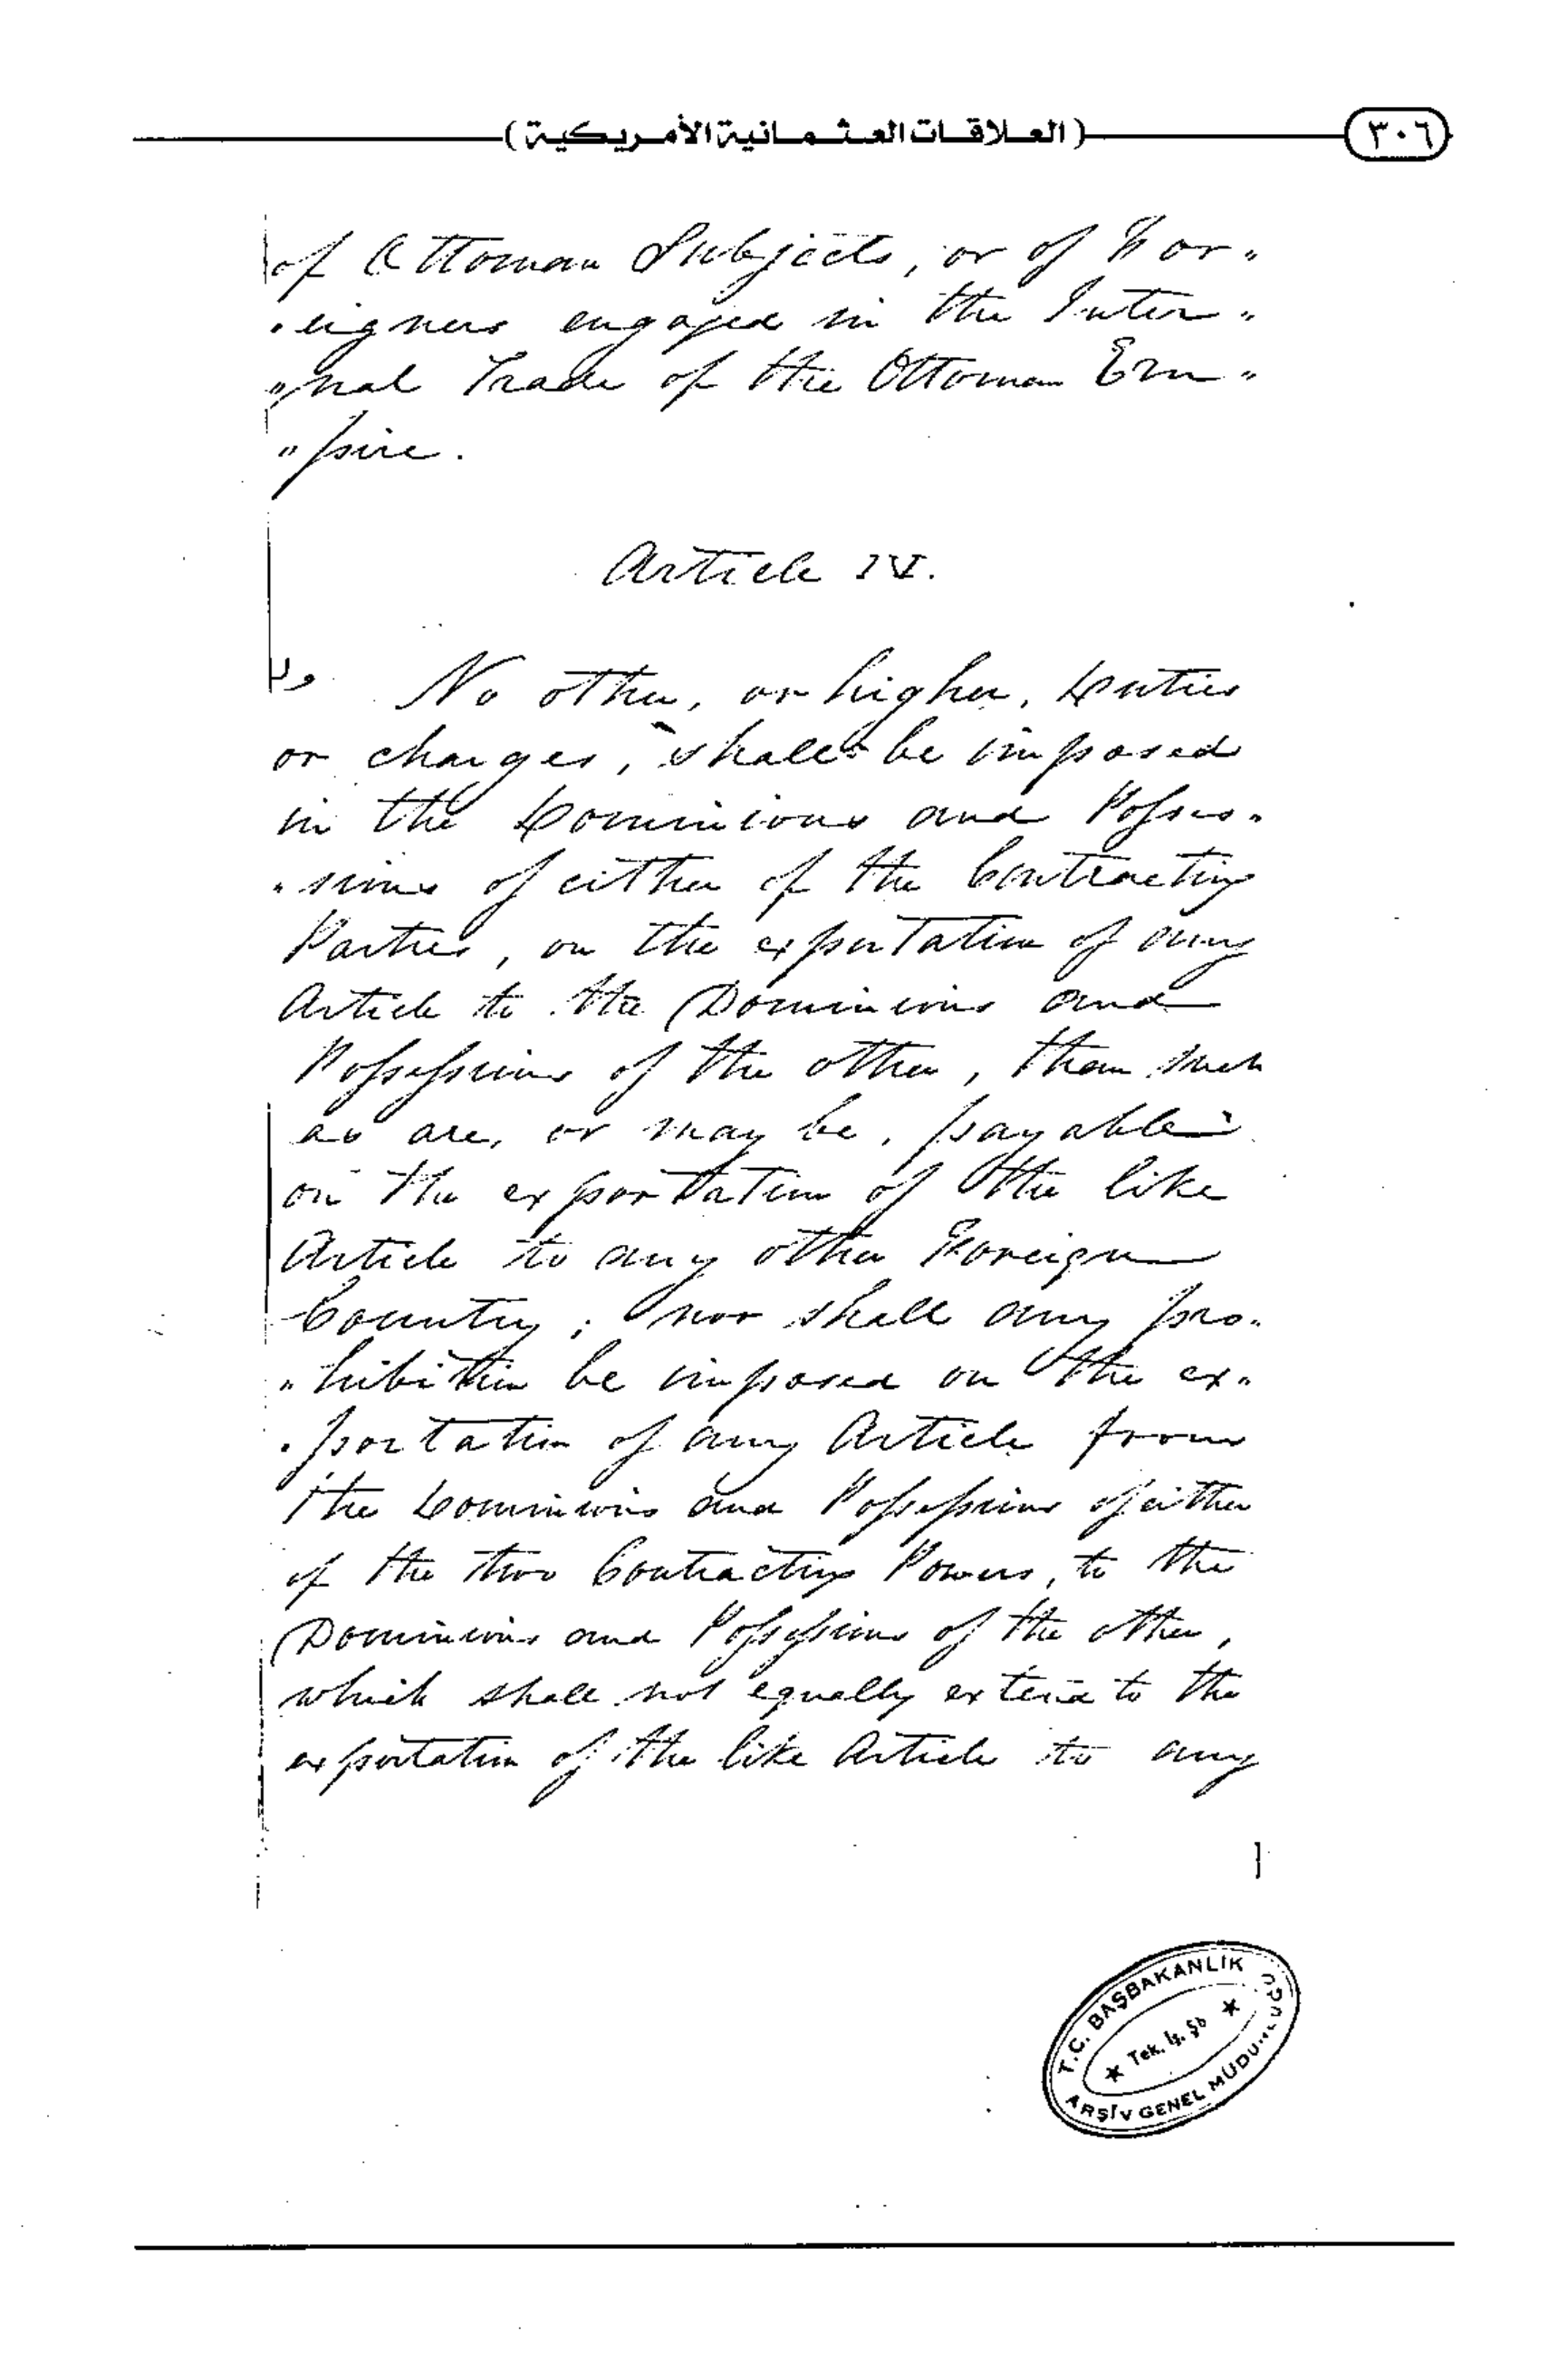 (العلاقات العثمانية الأمريكية)
٣٠٦
of Ottoman Subjects, or of For„
„eigners engaged in the Inter„
„nal Trade of the Ottoman Em„
„pire.
Article IV.
No other, or higher, Duties
or charges, shall be imposed
in the Dominions and Posses„
„sions of either of the Contracting
Parties, on the exportation of any
Article to the Dominions and
Possessions of the other, than such
as are, or may be, payable
on the exportation of the like
Article to any other Foreign
Country; nor shall any pro„
„hibition be imposed on the ex„
„portation of any Article from
the Dominions and Possessions of either
of the two Contracting Powers, to the
Dominions and Possessions of the other,
which shall not equally extend to the
exportation of the like Article to any
T.C. BAŞBAKANLIK
★ Tek. İş. Şb ★
ARŞİV GENEL MÜDÜRLÜĞÜ